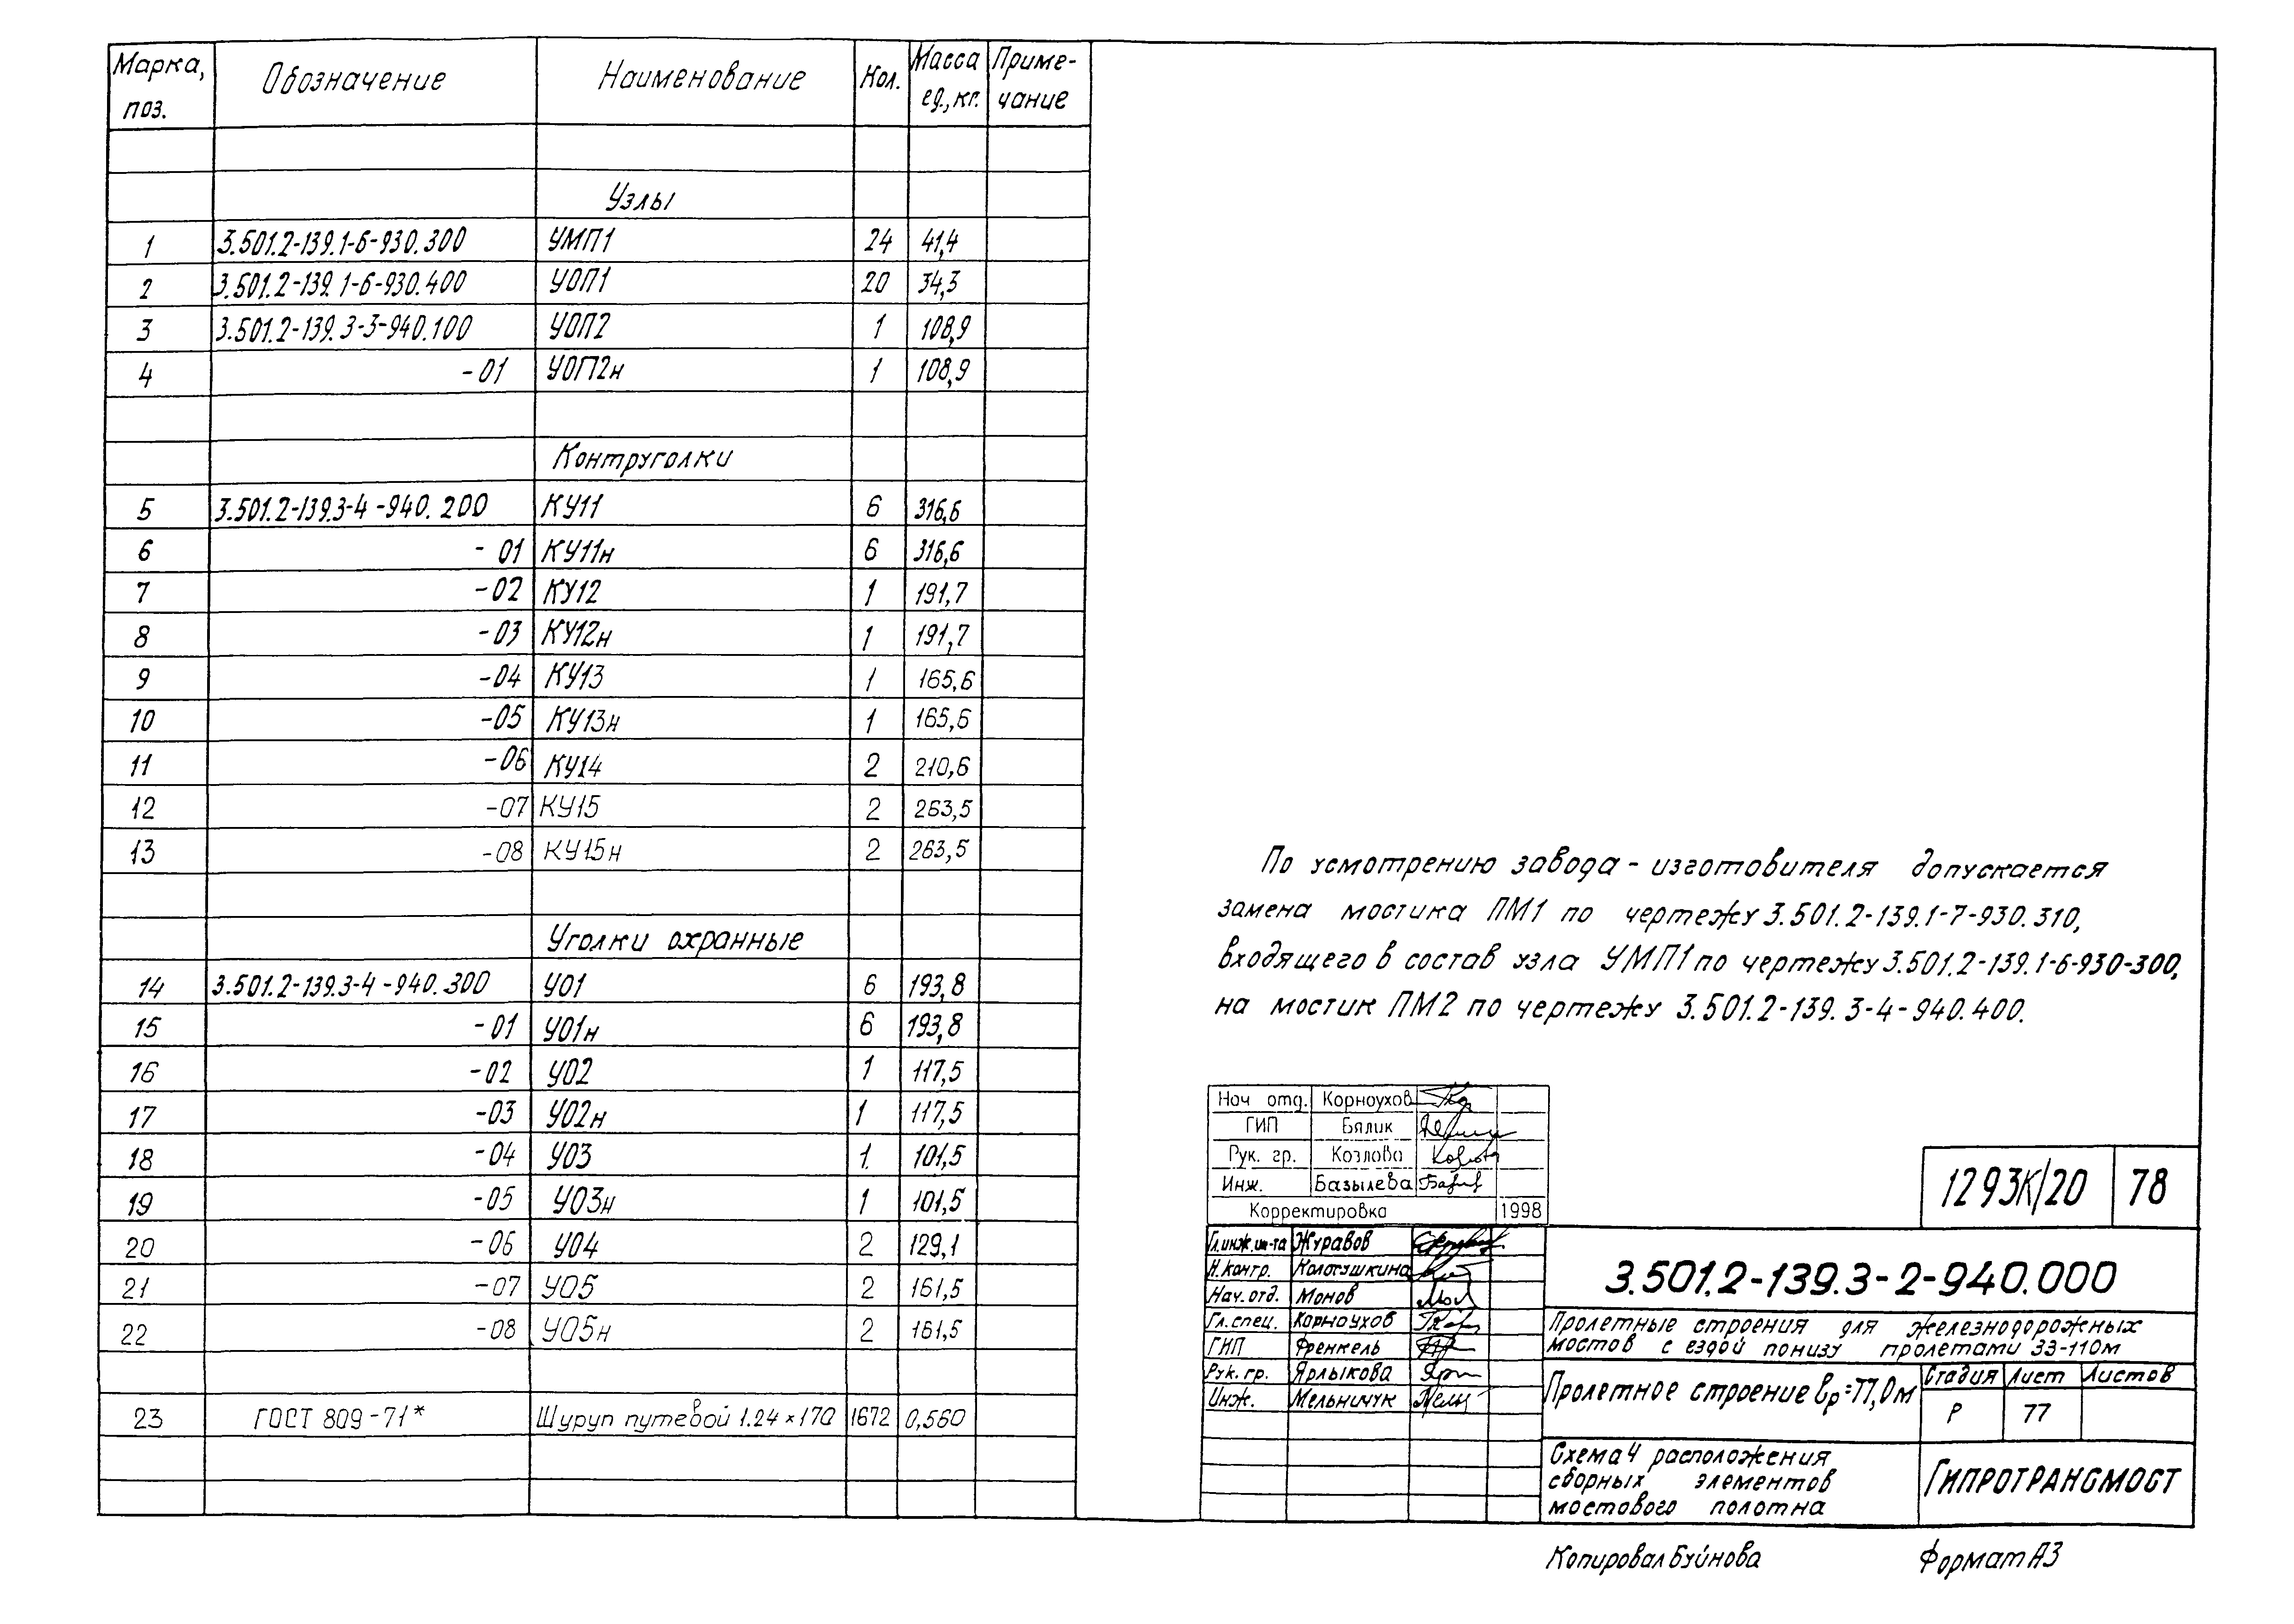 Марка, поз. Обозначение Наименование Кол. Масса ед., кг. Приме-чание
Узлы
1 3.501.2-139.1-6-930.300 УМП1 24 41,4
2 3.501.2-139.1-6-930.400 УОП1 20 34,3
3 3.501.2-139.3-3-940.100 УОП2 1 108,9
4 -01 УОП2н 1 108,9
Контруголки
5 3.501.2-139.3-4-940.200 КУ11 6 316,6
6 -01 КУ11н 6 316,6
7 -02 КУ12 1 191,7
8 -03 КУ12н 1 191,7
9 -04 КУ13 1 165,6
10 -05 КУ13н 1 165,6
11 -06 КУ14 2 210,6
12 -07 КУ15 2 263,5
13 -08 КУ15н 2 263,5
Уголки охранные
14 3.501.2-139.3-4-940.300 УО1 6 193,8
15 -01 УО1н 6 193,8
16 -02 УО2 1 117,5
17 -03 УО2н 1 117,5
18 -04 УО3 1 101,5
19 -05 УО3н 1 101,5
20 -06 УО4 2 129,1
21 -07 УО5 2 161,5
22 -08 УО5н 2 161,5
23 ГОСТ 809-71* Шуруп путевой 1.24×170 1672 0,560
По усмотрению завода-изготовителя допускается
замена мостика ПМ1 по чертежу 3.501.2-139.1-7-930.310,
входящего в состав узла УМП1 по чертежу 3.501.2-139.1-6-930-300,
на мостик ПМ2 по чертежу 3.501.2-139.3-4-940.400.
Нач отд. Корноухов
ГИП Бялик
Рук. гр. Козлова
Инж. Базылева
Корректировка 1998
1293К/20 78
Гл.инж.ин-та Журавов
Н.контр. Колотушкина
Нач.отд. Монов
Гл.спец. Корноухов
ГИП Френкель
Рук.гр. Ярлыкова
Инж. Мельничук
3.501.2-139.3-2-940.000
Пролетные строения для железнодорожных
мостов с ездой понизу пролетами 33-110м
Пролетное строение ℓр=77,0м
Стадия Лист Листов
Р 77
Схема 4 расположения
сборных элементов
мостового полотна
ГИПРОТРАНСМОСТ
Копировал Буйнова Формат А3